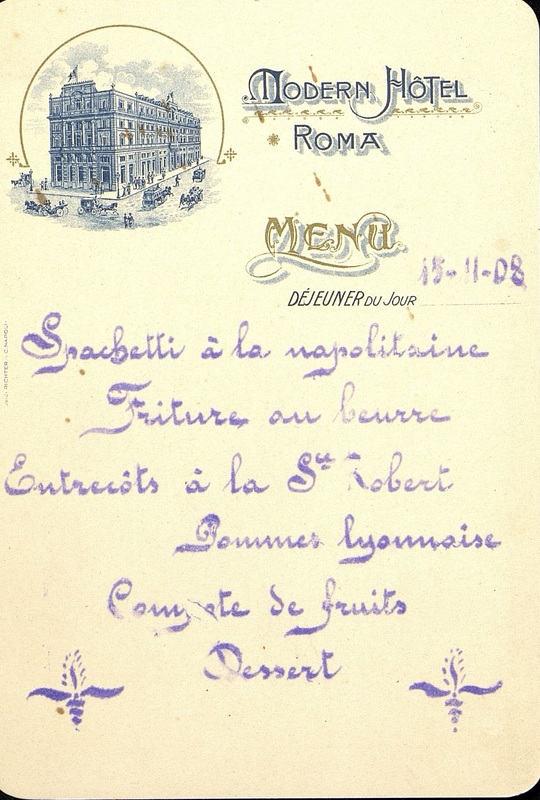 MODERN HÔTEL
ROMA
MENU
15-11-08
DÉJEUNER DU JOUR
Spachetti à la napolitaine
Friture au beurre
Entrecôts à la Sce Robert
Pommes lyonnaise
Compote de fruits
Dessert